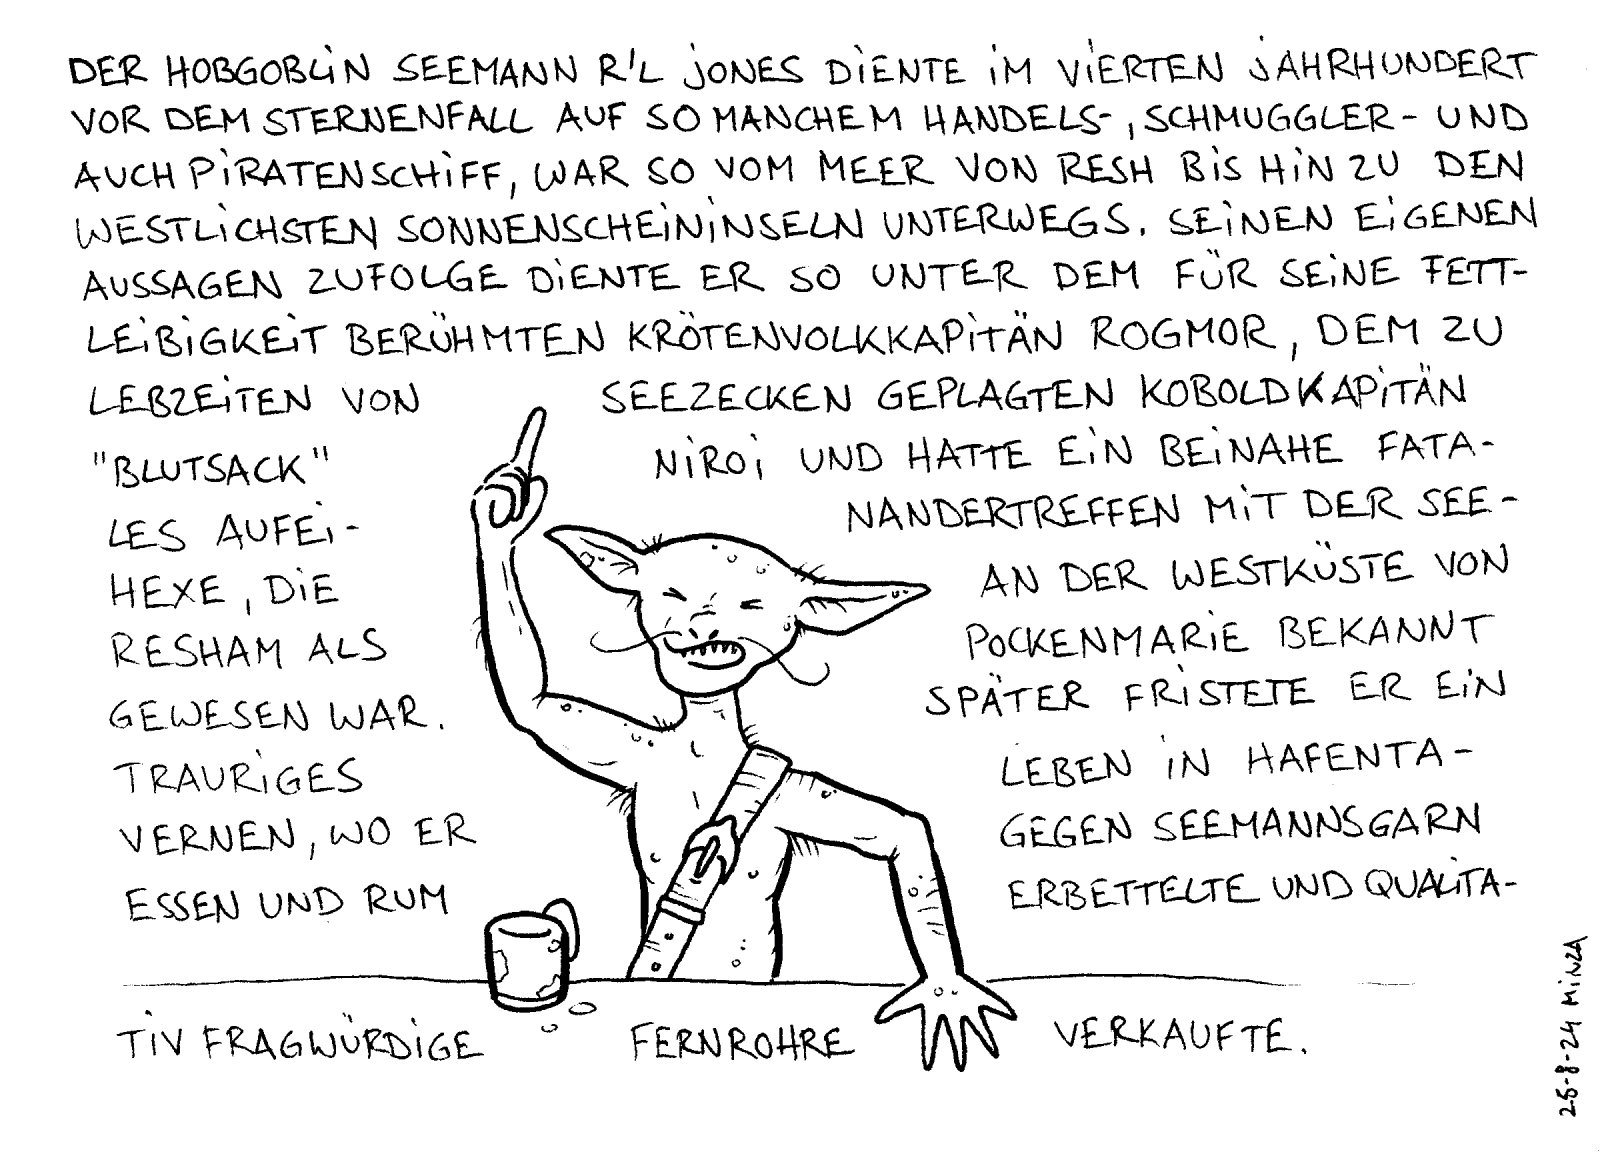 DER HOBGOBLIN SEEMANN R'L JONES DIENTE IM VIERTEN JAHRHUNDERT
VOR DEM STERNENFALL AUF SO MANCHEM HANDELS-, SCHMUGGLER- UND
AUCH PIRATENSCHIFF, WAR SO VOM MEER VON RESH BIS HIN ZU DEN
WESTLICHSTEN SONNENSCHEININSELN UNTERWEGS. SEINEN EIGENEN
AUSSAGEN ZUFOLGE DIENTE ER SO UNTER DEM FÜR SEINE FETT-
LEIBIGKEIT BERÜHMTEN KRÖTENVOLKKAPITÄN ROGMOR, DEM ZU
LEBZEITEN VON SEEZECKEN GEPLAGTEN KOBOLDKAPITÄN
"BLUTSACK" NIROI UND HATTE EIN BEINAHE FATA-
LES AUFEI- NANDERTREFFEN MIT DER SEE-
HEXE, DIE AN DER WESTKÜSTE VON
RESHAM ALS POCKENMARIE BEKANNT
GEWESEN WAR. SPÄTER FRISTETE ER EIN
TRAURIGES LEBEN IN HAFENTA-
VERNEN, WO ER GEGEN SEEMANNSGARN
ESSEN UND RUM ERBETTELTE UND QUALITA-
TIV FRAGWÜRDIGE FERNROHRE VERKAUFTE.
25-8-24 MINZA